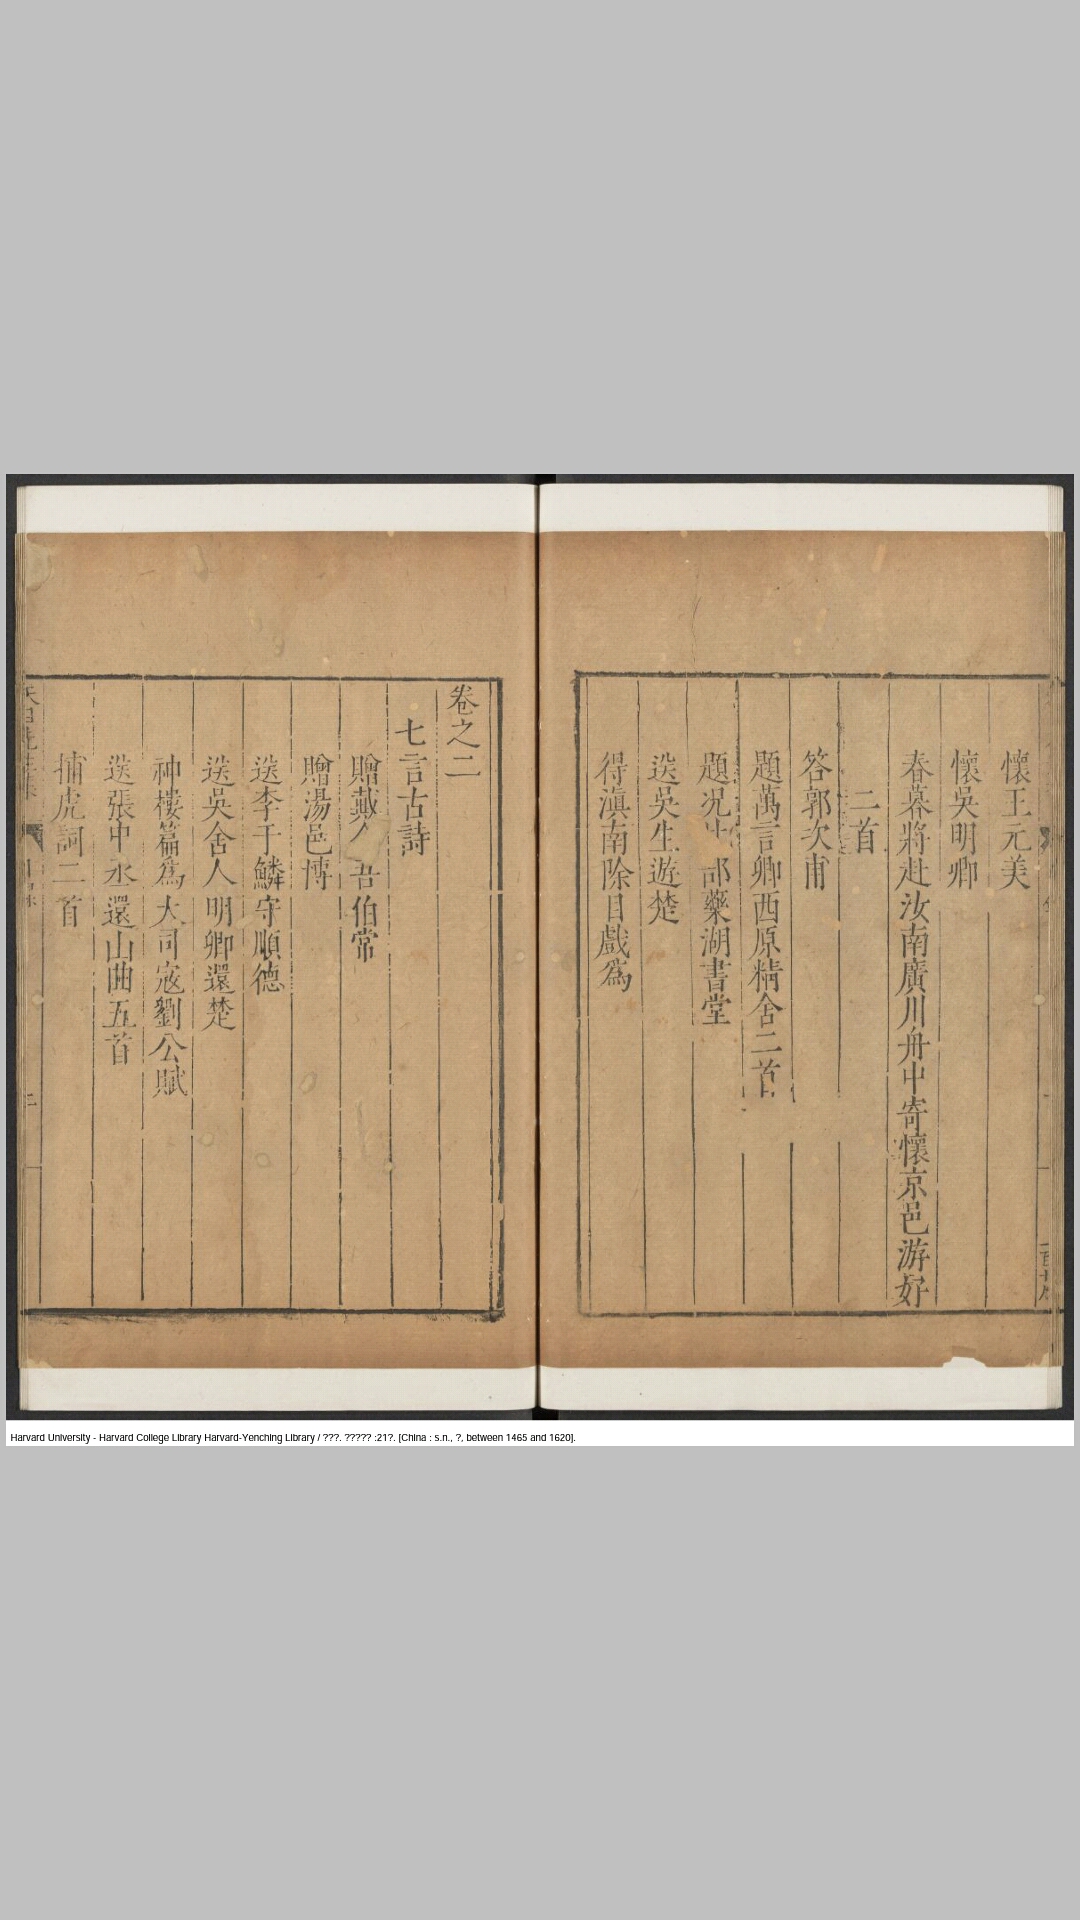 懷王元美
懷吳明卿
春暮將赴汝南廣川舟中寄懷京邑游好
二首
答郭次甫
題萬言卿西原精舍二首
題况 部藥湖書堂
送吳生遊楚
得滇南除目戲爲
卷之二
七言古詩
贈戴 吾伯常
贈湯邑博
送李于鱗守順德
送吳舍人明卿還楚
神樓篇爲大司寇劉公賦
送張中丞還山曲五首
捕虎詞二首
Harvard University - Harvard College Library Harvard-Yenching Library / ???. ????? :21?. [China : s.n., ?, between 1465 and 1620].